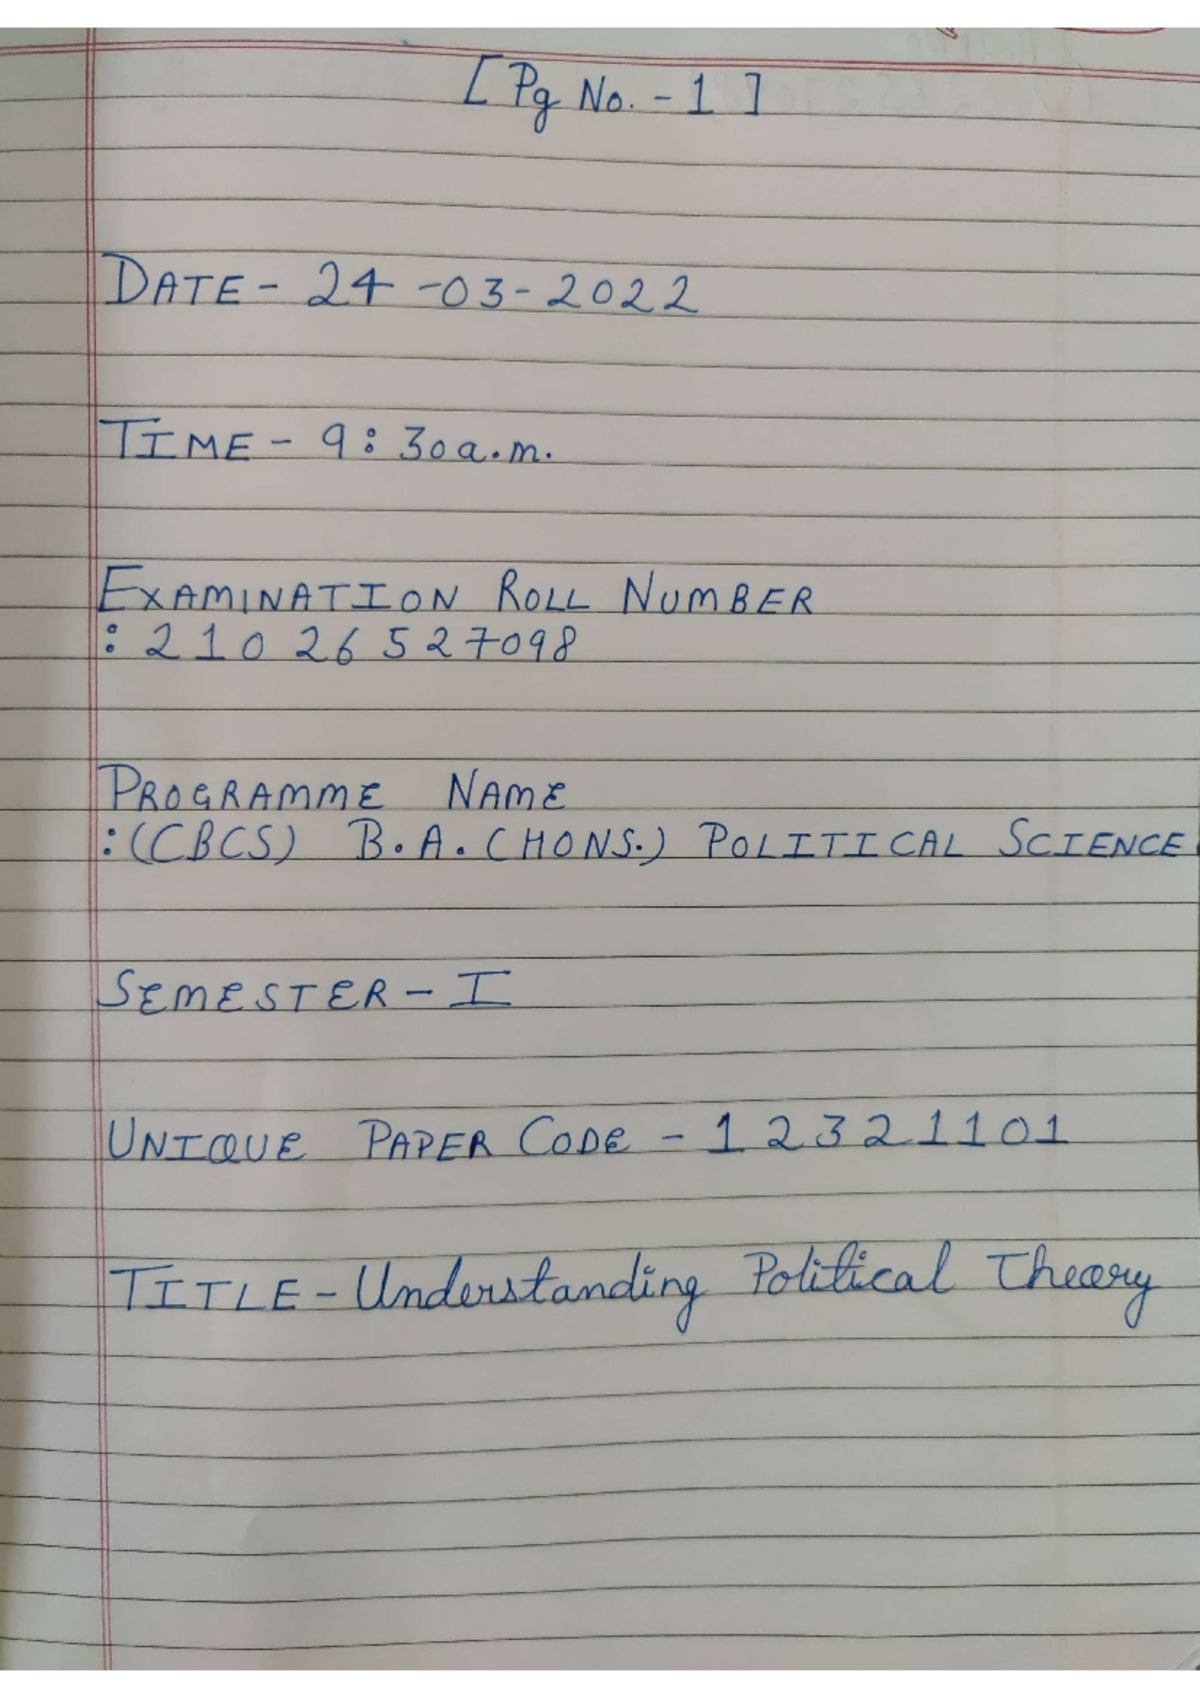 [Pg No. - 1]
DATE - 24 -03-2022
TIME - 9:30a.m.
EXAMINATION ROLL NUMBER
: 21026527098
PROGRAMME NAME
: (CBCS) B.A. (HONS.) POLITICAL SCIENCE
SEMESTER - I
UNIQUE PAPER CODE - 12321101
TITLE - Understanding Political Theory